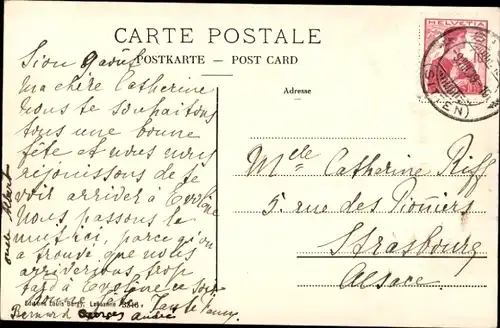 CARTE POSTALE
POSTKARTE — POST CARD
Adresse
HELVETIA
(SITTEN)
Sion 9 août
Ma chère Catherine
Nous te souhaitons
tous une bonne
fête et nous nous
réjouissons de te
voir arriver à Evolène
Nous passons la
nuit ici, parce qu'on
a trouvé que nous
arriverions trop
tard à Evolène ce soir
Tante Fanny
Bernard Georges André
oncle Albert
Mlle Catherine Riff
5. rue des Pionniers
Strasbourg
Alsace.
Lausanne